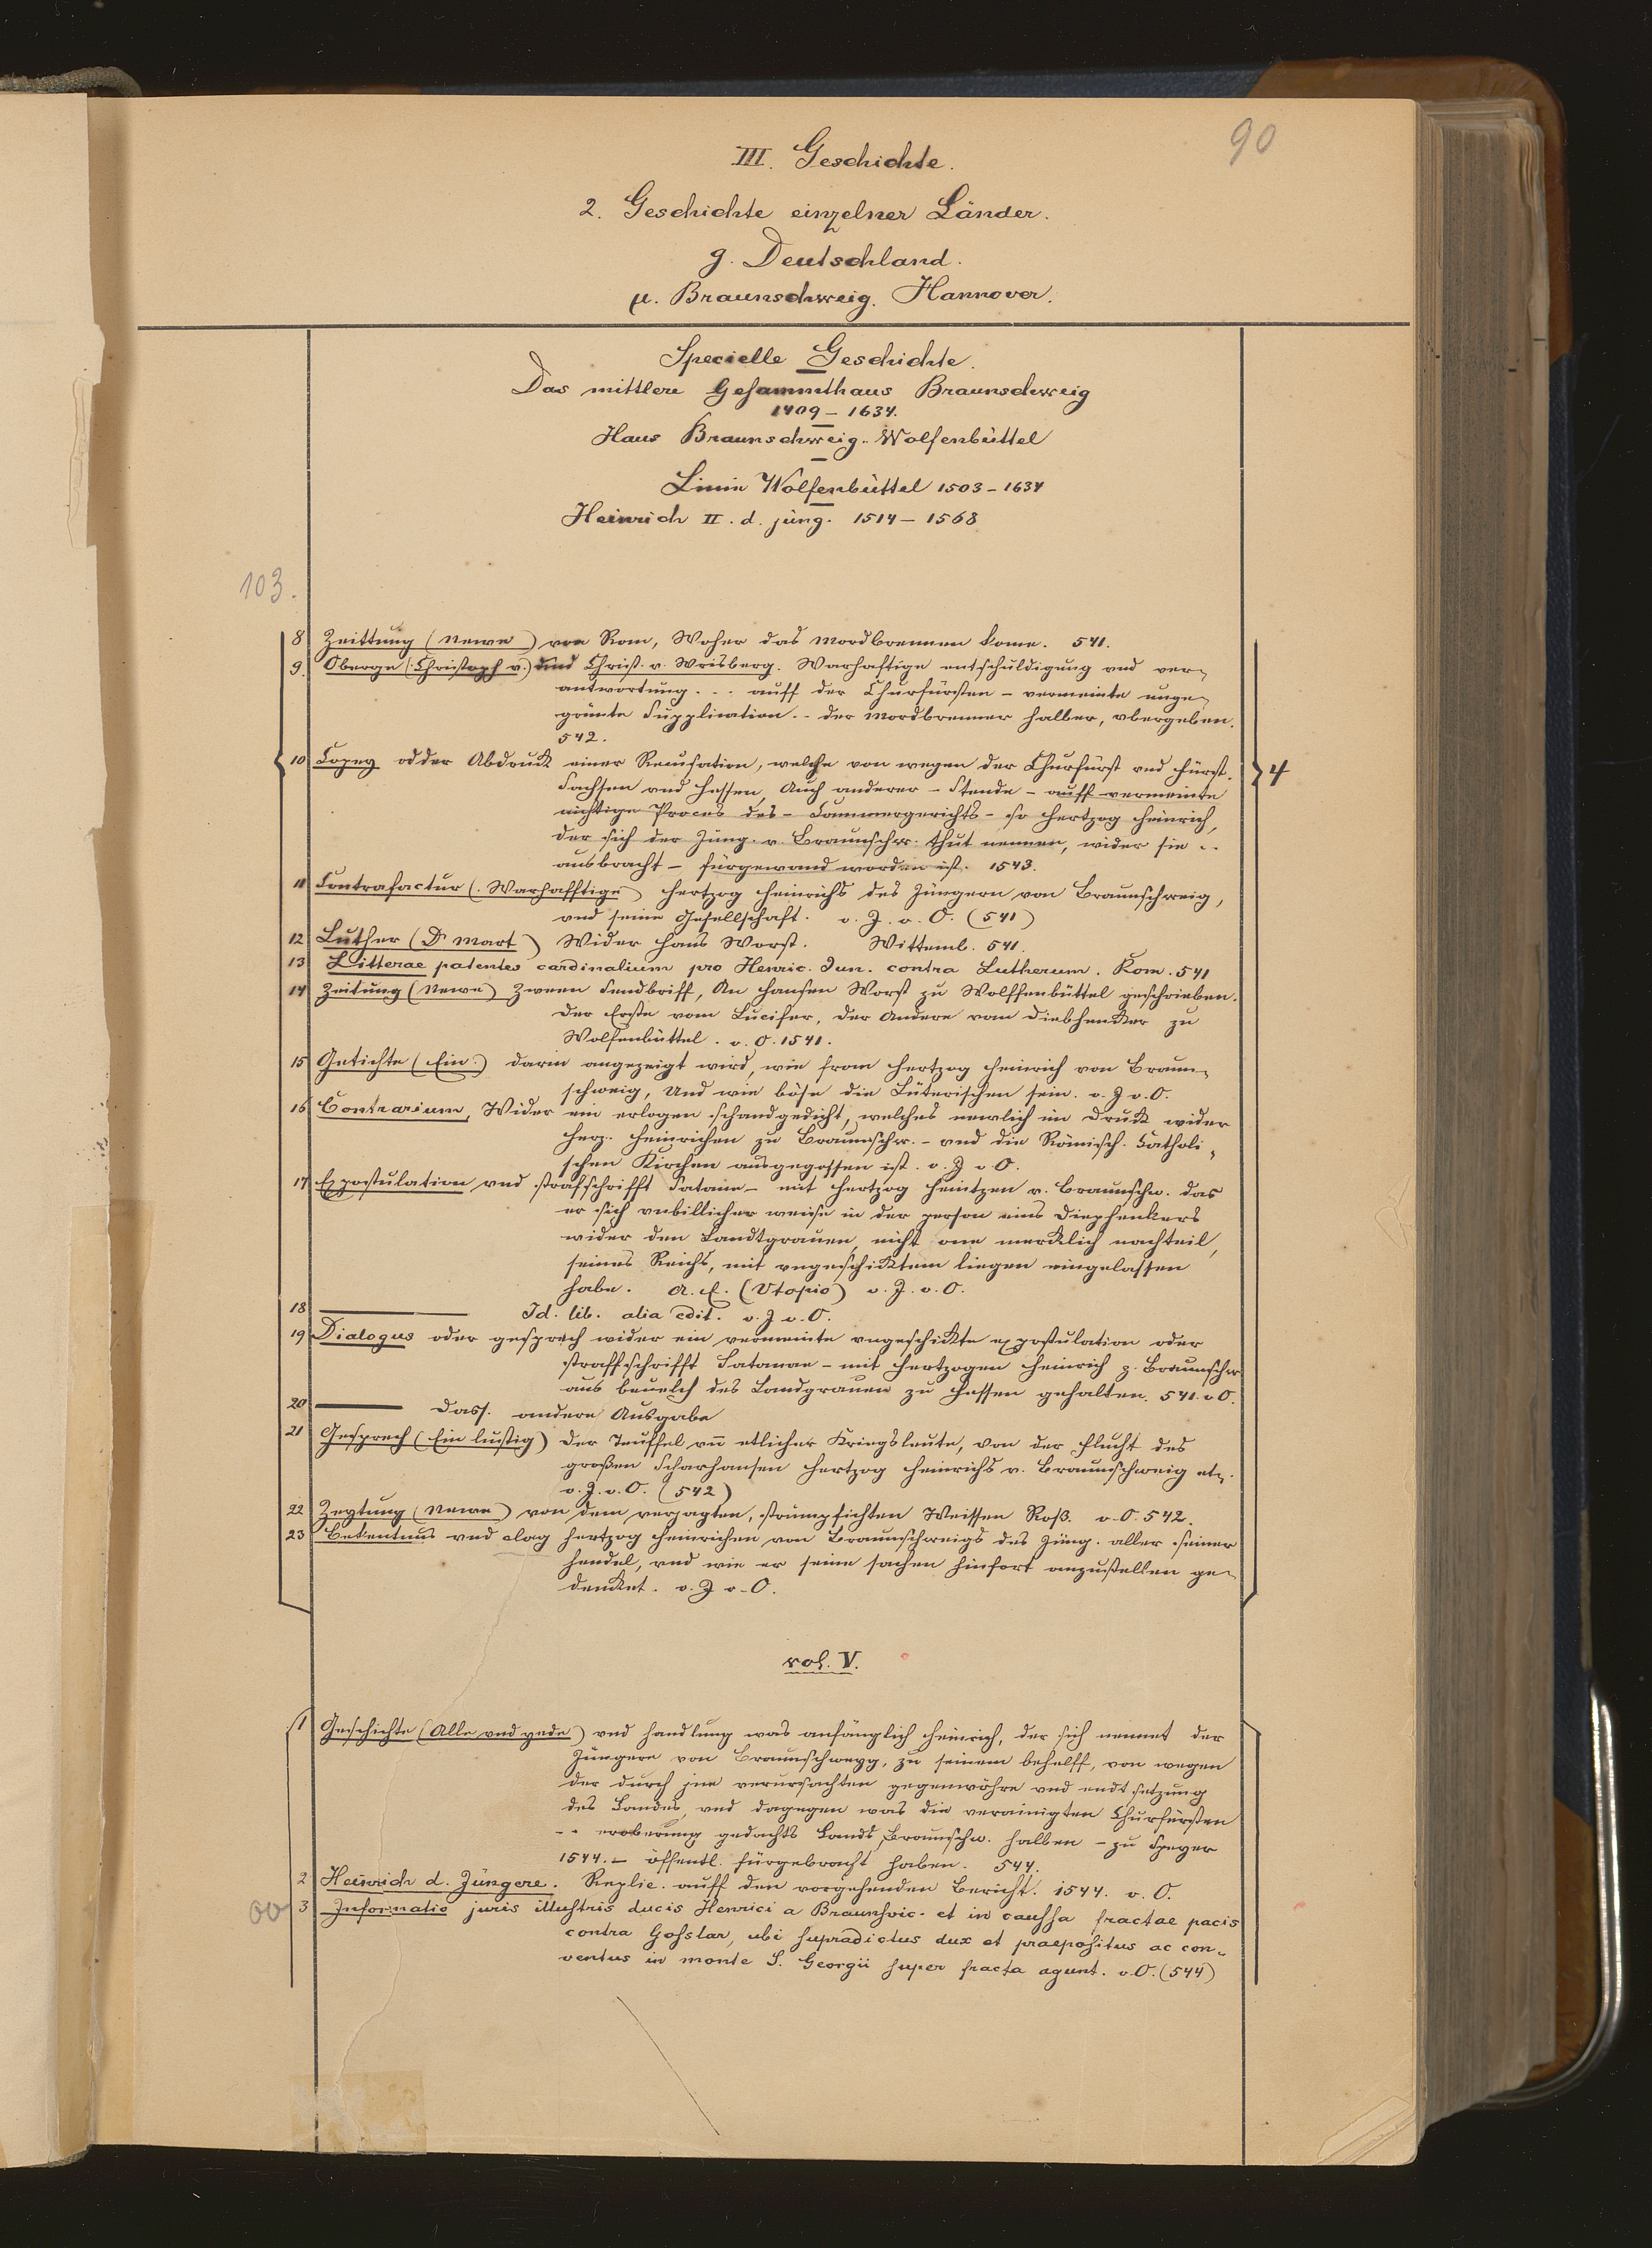 90
III. Geschichte.
2. Geschichte einzelner Länder.
g. Deutschland.
µ. Braunschweig. Hannover.
Specielle Geschichte.
Das mittlere Gesammthaus Braunschweig
1409 – 1634.
Haus Braunschweig-Wolfenbüttel
Linie Wolfenbüttel 1503 – 1634
Heinrich II. d. jüng. 1514 – 1568
103.
8 Zeittung (Newe) von Rom, Woher das Mordbrennen kome. 541.
9. Oberge (Christoph v.) und Christ. v. Wrisberg. Warhaftige entschuldigung vnd ver-
antwortung ... auff der Churfürsten – vermeinte unge-
grünte Supplication .. der Mordbrenner halber, vbergeben.
542.
10 Copey odder Abdruck einer Recusation, welche von wegen der Churfürst vnd Fürst.
Sachsen vnd Hessen, Auch anderer – Stende – auff vermeinte
nichtige Proces des – Cammergerichts – so Hertzog Heinrich,
der sich der Jüng. v. Braunschw. thut nennen, wider sie ..
ausbracht – fürgewand worden ist. 1543.
4
11 Contrafactur (Warhafftige) Hertzog Heinrichs des Jüngern von Braunschweig,
vnd seine Gesellschaft. o. J. o. O. (541)
12 Luther (Dr Mart) Wider Hans Worst. Wittemb. 541.
13 Litterae patentes cardinalium pro Henric. Jun. contra Lutherum. Rom. 541
14 Zeitung (Newe) Zween Sendbriff, An Hansen Worst zu Wolffenbüttel geschrieben.
Der Erste vom Lucifer, der Andere vom Diebhencker zu
Wolfenbüttel. o. O. 1541.
15 Getichte (Ein) darin angezeigt wird, wie from Hertzog Heinrich von Braun-
schweig, Und wie böse die Lüterischen sein. o. J o. O.
16 Contrarium, Wider ein erlogen schandgedicht, welches newlich im Druck wider
Herz. Heinrichen zu Braunschw. – vnd die Römisch. Catholi-
schen Kirchen ausgegossen ist. o. J o O.
17 Expostulation vnd strafschrifft Satane – mit Hertzog Heintzen v. Braunschw. das
er sich vnbillicher weise in der person eins Diephenkers
wider den Landtgrauen, nicht one mercklich nachteil,
seines Reichs, mit vngeschicktem liegen eingelassen
habe. A. E. (Utopio) o. J. o. O.
18 ——— Id. lib. alia edit. o. J o. O.
19 Dialogus oder gesprech wider ein vermeinte vngeschickte expostulation oder
straffschrifft Satanae – mit Hertzogen Heinrich z. Braunschw
aus beuelch des Landgrauen zu Hessen gehalten. 541. o O.
20 ——— Dass. andere Ausgabe
21 Gesprech (Ein lustig) der Teuffel vn̄ etlicher Kriegsleute, von der flucht des
großen Scharhansen Hertzog Heinrichs v. Braunschweig etc.
o. J. o. O. (542)
22 Zeytung (Newe) von dem verjagten, strümpfichten Weissen Roß. o. O. 542.
23 Bekentnus vnd clag Hertzog Heinrichen von Braunschweigs des Jüng. aller seiner
hendel, vnd wie er seine sachen hinfort anzustellen ge-
dencket. o. J o. O.
vol. V.
1 Geschichte (Alle vnd yede) vnd handlung was anfänglich Heinrich, der sich nennet der
Jüngere von Braunschweyg, zu seinem behelff, von wegen
der durch jne verursachten gegenwöhre vnd endtsetzung
des Landes, vnd dagegen was die verainigten Churfürsten
.. eroberung gedachts Lands Braunschw. halben – zu Speyer
1544. – öffentl. fürgebracht haben. 544.
2 Heinrich d. Jüngere. Replic. auff den vorgehenden Bericht. 1544. o. O.
3 Informatio juris illustris ducis Henrici a Braunsvic. et in caussa fractae pacis
contra Goslar, ubi supradictus dux et praepositus ac con-
ventus in monte S. Georgii super fracta agunt. o. O. (544)